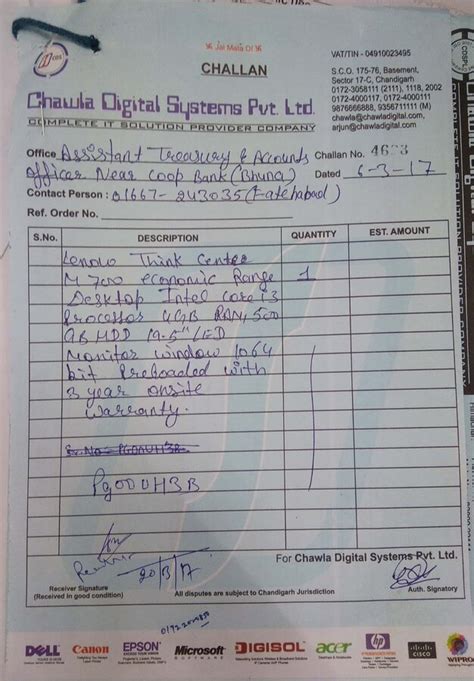 Jai Mata Di
CHALLAN
VAT/TIN - 04910023495
S.C.O. 175-76, Basement,
Sector 17-C, Chandigarh
0172-3058111 (2111), 1118, 2002
0172-4000117, 0172-4000111
9876666888, 9356711111 (M)
chawla@chawladigital.com,
arjun@chawladigital.com
Chawla Digital Systems Pvt. Ltd.
COMPLETE IT SOLUTION PROVIDER COMPANY
Office Assistant Treasury & Accounts Challan No.
officer Near Coop Bank (Bhuna) Dated 6-3-17
Contact Person : 01667-243035 (Fatehabad)
Ref. Order No.
S.No. DESCRIPTION QUANTITY EST. AMOUNT
Lenovo Think Center
M 700 economic Range 1
Desktop Intel core i3
Processor 4GB RAM, 500
GB HDD 19.5" LED
Monitor window 10 64
bit Preloaded with
3 year onsite
warranty.
PG00UH3B
20/3/17
For Chawla Digital Systems Pvt. Ltd.
Receiver Signature
(Received in good condition)
All disputes are subject to Chandigarh Jurisdiction
Auth. Signatory
DELL Canon EPSON Microsoft DIGISOL acer hp cisco WIPRO
SOFTWARE